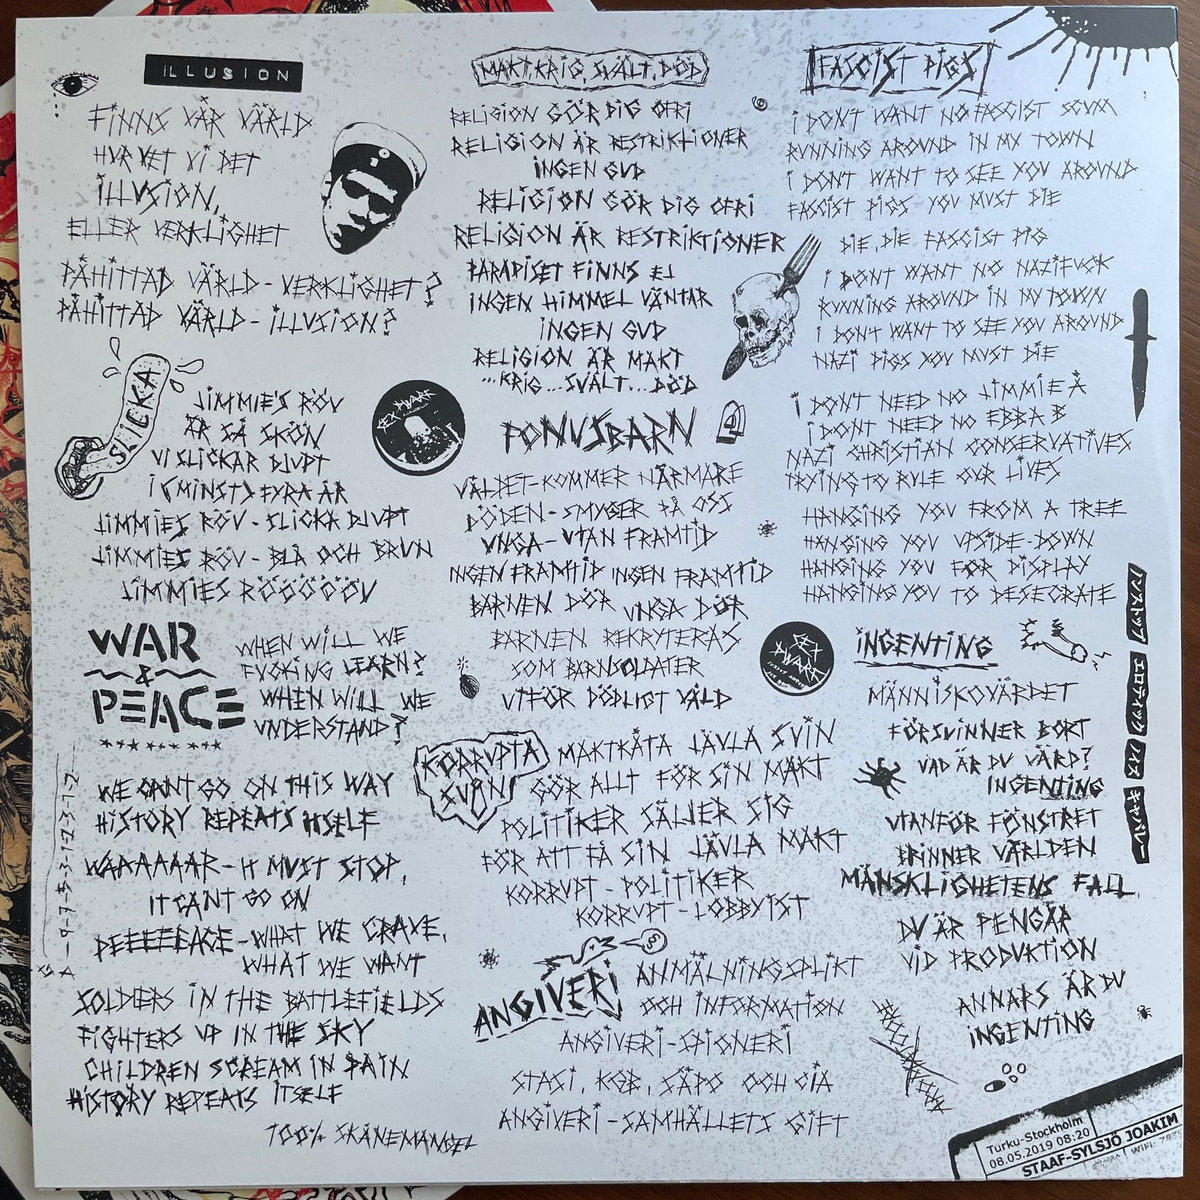 ILLUSION
FINNS VÅR VÄRLD
HUR VET VI DET
ILLUSION,
ELLER VERKLIGHET
PÅHITTAD VÄRLD - VERKLIGHET?
PÅHITTAD VÄRLD - ILLUSION?
SLICKA
JIMMIE'S RÖV
ÄR SÅ SKÖN
VI SLICKAR DJUPT
I (MINST) FYRA ÅR
JIMMIES RÖV - SLICKA DJUPT
JIMMIES RÖV - BLÅ OCH BRUN
JIMMIES RÖÖÖÖÖÖV
WAR
&
PEACE
WHEN WILL WE
FUCKING LEARN?
WHEN WILL WE
UNDERSTAND?
WE CAN'T GO ON THIS WAY
HISTORY REPEATS ITSELF
WAAAAAAR - IT MUST STOP,
IT CAN'T GO ON
PEEEEEACE - WHAT WE CRAVE,
WHAT WE WANT
SOLDIERS IN THE BATTLEFIELDS
FIGHTERS UP IN THE SKY
CHILDREN SCREAM IN PAIN
HISTORY REPEATS ITSELF
100% SKÅNEMANGEL
MAKT, KRIG, SVÄLT, DÖD
RELIGION GÖR DIG OFRI
RELIGION ÄR RESTRIKTIONER
INGEN GUD
RELIGION GÖR DIG OFRI
RELIGION ÄR RESTRIKTIONER
PARADISET FINNS EJ
INGEN HIMMEL VÄNTAR
INGEN GUD
RELIGION ÄR MAKT
...KRIG...SVÄLT...DÖD
SEX DWARF
FONUSBARN
VÅLDET KOMMER NÄRMARE
DÖDEN - SMYGER PÅ OSS
UNGA - UTAN FRAMTID
INGEN FRAMTID INGEN FRAMTID
BARNEN DÖR UNGA DÖR
BARNEN REKRYTERAS
SOM BARNSOLDATER
UTFÖR DÖDLIGT VÅLD
SEX
DWARF
KORRUPTA
SVIN!
MAKTKÅTA JÄVLA SVIN
GÖR ALLT FÖR SIN MAKT
POLITIKER SÄLJER SIG
FÖR ATT FÅ SIN JÄVLA MAKT
KORRUPT - POLITIKER
KORRUPT - LOBBYIST
ANGIVERI
ANMÄLNINGSPLIKT
OCH INFORMATION
ANGIVERI - SPIONERI
STASI, KGB, SÄPO OCH CIA
ANGIVERI - SAMHÄLLETS GIFT
FASCIST PIGS
I DON'T WANT NO FASCIST SCUM
RUNNING AROUND IN MY TOWN
I DON'T WANT TO SEE YOU AROUND
FASCIST PIGS YOU MUST DIE
DIE, DIE FASCIST PIG
I DONT WANT NO NAZIFUCK
RUNNING AROUND IN MY TOWN
I DON'T WANT TO SEE YOU AROUND
NAZI PIGS YOU MUST DIE
I DON'T NEED NO JIMMIE Å
I DONT NEED NO EBBA B
NAZI CHRISTIAN CONSERVATIVES
TRYING TO RULE OUR LIVES
HANGING YOU FROM A TREE
HANGING YOU UPSIDE-DOWN
HANGING YOU FOR DISPLAY
HANGING YOU TO DESECRATE
INGENTING
MÄNNISKOVÄRDET
FÖRSVINNER BORT
VAD ÄR DU VÄRD?
INGENTING
UTANFÖR FÖNSTRET
BRINNER VÄRLDEN
MÄNSKLIGHETENS FALL
DU ÄR PENGAR
VID PRODUKTION
ANNARS ÄR DU
INGENTING
ノンストップ エロティック ノイズ キャバレー
Turku-Stockholm
08.05.2019 08:20
STAAF-SYLSJÖ JOAKIM